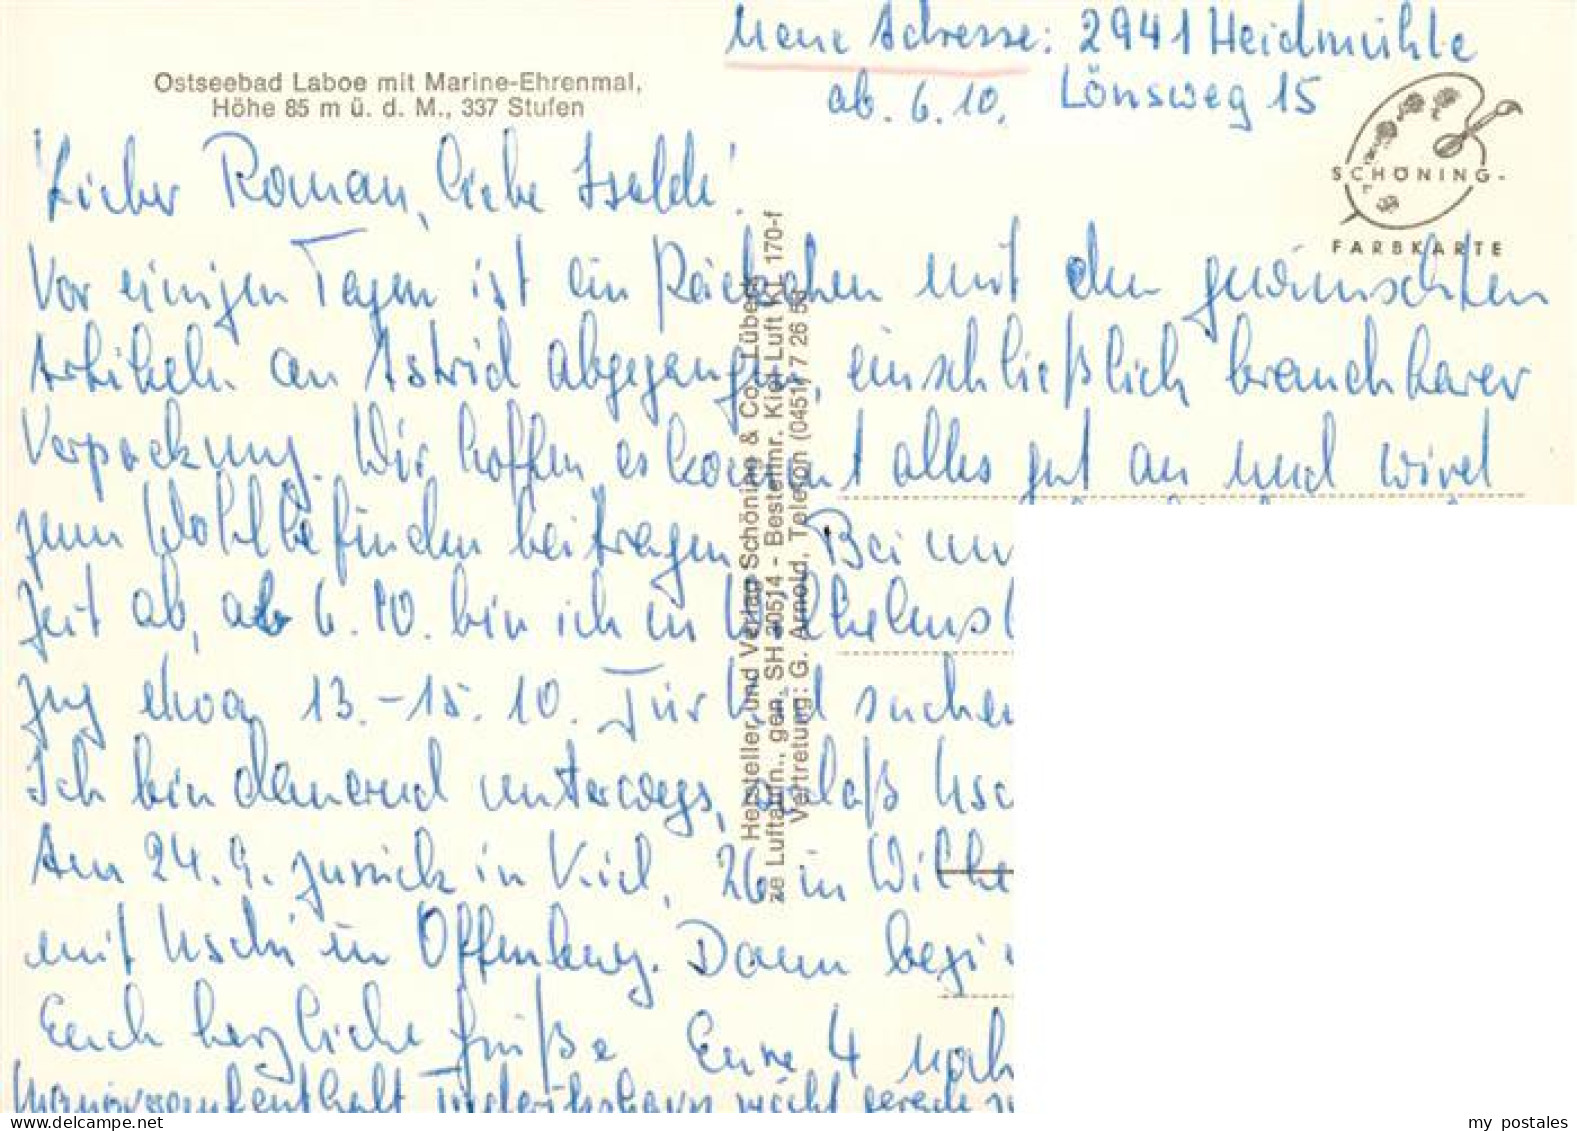 Neue Adresse: 2941 Heidmühle
ab. 6.10. Lönsweg 15
Ostseebad Laboe mit Marine-Ehrenmal,
Höhe 85 m ü. d. M., 337 Stufen
SCHÖNING-
FARBKARTE
Lieber Roman, liebe Isolde!
Vor einigen Tagen ist ein Päckchen mit den gewünschten
Artikeln an Astrid abgegangen, einschließlich brauchbarer
Verpackung. Wir hoffen es kommt alles gut an und wird
zum Wohlbefinden beitragen. Bei un
Zeit ab, ab 6.10. bin ich in Wilhelmsh
zug etwa 13.-15.10. Für suchen
Ich bin dauernd unterwegs, sodaß Usc
Am 24.9. zurück in Kiel, 26 in Wilhe
mit Uschi in Offenburg. Dann begi
Euch herzliche Grüße Eure 4 nach
nicht gerade
Hersteller und Verlag Schöning & Co., Lübeck
ze Luftaufn., gen. SH 30514 - Bestellnr. Kiel Luft KL 170-f
Vertretung: G. Arnold, Telefon (0451) 7 26 5
my postales